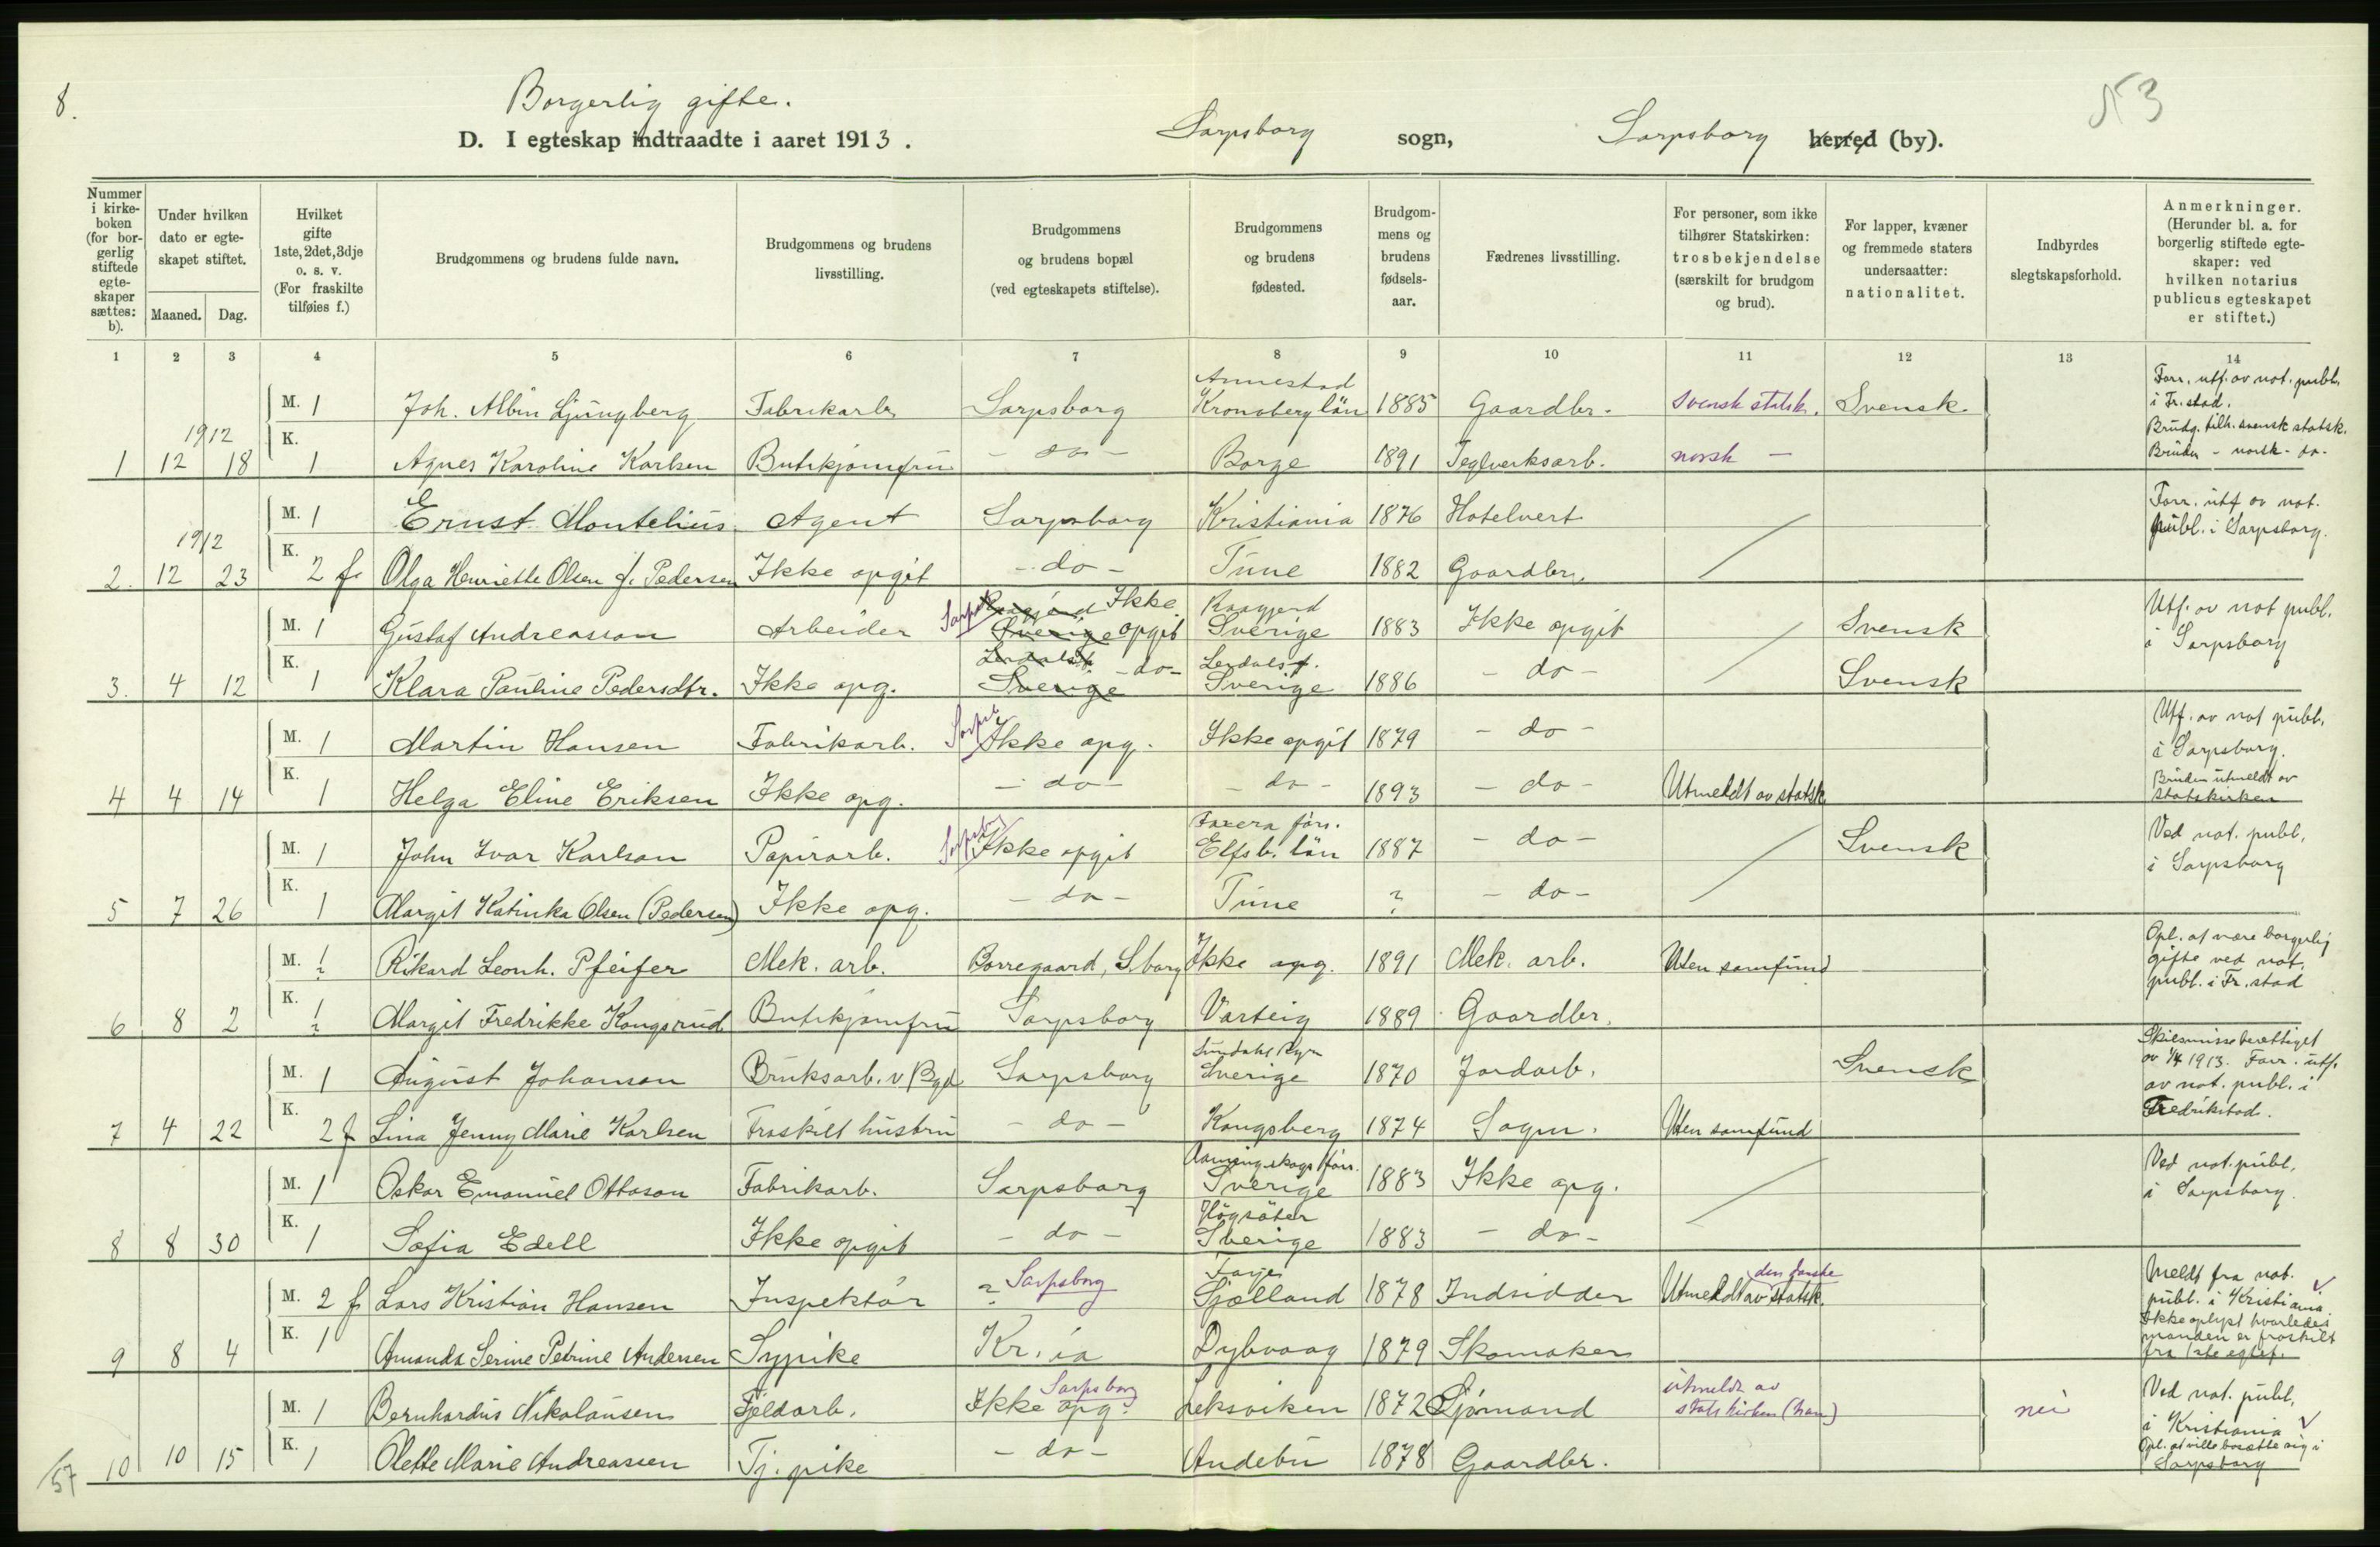 8.
Borgerlig gifte.
N 3
D. I egteskap indtraadte i aaret 1913. Sarpsborg sogn, Sarpsborg herred (by).
Nummer i kirke-boken (for bor-gerlig stiftede egte-skaper sættes: b).
Under hvilken dato er egte-skapet stiftet.
Maaned. Dag.
Hvilket gifte 1ste, 2det, 3dje o. s. v. (For fraskilte tilføies f.)
Brudgommens og brudens fulde navn.
Brudgommens og brudens livsstilling.
Brudgommens og brudens bopæl (ved egteskapets stiftelse).
Brudgommens og brudens fødested.
Brudgom-mens og brudens fødsels-aar.
Fædrenes livsstilling.
For personer, som ikke tilhører Statskirken: trosbekjendelse (særskilt for brudgom og brud).
For lapper, kvæner og fremmede staters undersaatter: nationalitet.
Indbyrdes slegtskapsforhold.
Anmerkninger. (Herunder bl. a. for borgerlig stiftede egte-skaper: ved hvilken notarius publicus egteskapet er stiftet.)
1 2 3 4 5 6 7 8 9 10 11 12 13 14
M. 1 Joh. Albin Ljungberg Fabrikarb. Sarpsborg Annestad Kronoberg län 1885 Gaardbr. Svensk statsk. Svensk. Forr. utf. av not. publ. i Fr.stad.
1912
1 12 18 K. 1 Agnes Karoline Karlsen Butikjomfru - do - Borge 1891 Teglverksarb. norsk - Brudg. tilh. svensk statsk. Bruden - norsk - do -
M. 1 Ernst Montelius Agent Sarpsborg Kristiania 1876 Hotelvert Forr. utf. av not. publ. i Sarpsborg.
1912
2. 12 23 K. 2 f. Olga Henriette Olsen f. Pedersen Ikke opgit - do - Tune 1882 Gaardbr.
M. 1 Gustaf Andreasson Arbeider Sverige Ikke opgit Sverige 1883 Ikke opgit Svensk Utf. av not publ. i Sarpsborg
3. 4 12 K. 1 Klara Pauline Pedersdtr. Ikke opg. Sverige - do - Lerdals f. Sverige 1886 - do - Svensk
M. 1 Martin Hansen Fabrikarb. Sarpsb Ikke opg. Ikke opgit 1879 - do - Utf. av not publ. i Sarpsborg.
4 4 14 K. 1 Helga Eline Eriksen Ikke opg. - do - - do - 1893 - do - Utmeldt av statsk. Bruden utmeldt av statskirken
M. 1 John Ivar Karlson Papirarb. Sarpsborg Ikke opgit förs. Elfsb. län 1887 - do - Svensk Ved not. publ. i Sarpsborg
5 7 26 K. 1 Margit Katinka Olsen (Pedersen) Ikke opg. - do - Tune ? - do -
M. 1 ? Rikard Leonh. Pfeifer Mek. arb. Borregaard, S.borg Ikke opg. 1891 Mek. arb. Uten samfund Opl. at være borgerlig gifte ved not. publ. i Fr.stad
6 8 2 K. 1 ? Margit Fredrikke Kongsrud Butikjomfru Sarpsborg Varteig 1889 Gaardbr.
M. 1 August Johanson Bruksarb. v/Bgd. Sarpsborg Sverige 1870 Jordarb. Svensk Skilsmissebevettiget av 1/4 1913. Forr. utf. av not. publ. i Fredrikstad.
7 4 22 K. 2 f Lina Jenny Marie Karlsen Fraskilt hustru - do - Kongsberg 1874 Sagm. Uten samfund
M. 1 Oskar Emanuel Ottoson Fabrikarb. Sarpsborg förs. Sverige 1883 Ikke opg. Ved not. publ. i Sarpsborg.
8 8 30 K. 1 Sofia Edell Ikke opgit - do - Högsäter Sverige 1883 - do -
M. 2 f Lars Kristian Hansen Inspektör ? Sarpsborg Sjælland 1878 Indsidder Utmeldt av den danske statsk. Meldt fra not. publ. i Kristiania. Ikke oplyst hvorledes manden er fraskilt fra 1ste egtef.
9 8 4 K. 1 Amanda Serine Petrine Andersen Sypike Kr.ia Dybvaag 1879 Skomaker
M. 1 Bernhardus Nikolausen Fjeldarb. Ikke opg. Sarpsborg Leksviken 1872 Sjömand utmeldt av statskirken (han) nei Ved not. publ. i Kristiania
10 10 15 K. 1 Olette Marie Andreassen Tj. pike - do - Andebu 1878 Gaardbr. Opl. at ville bosætte sig i Sarpsborg
57